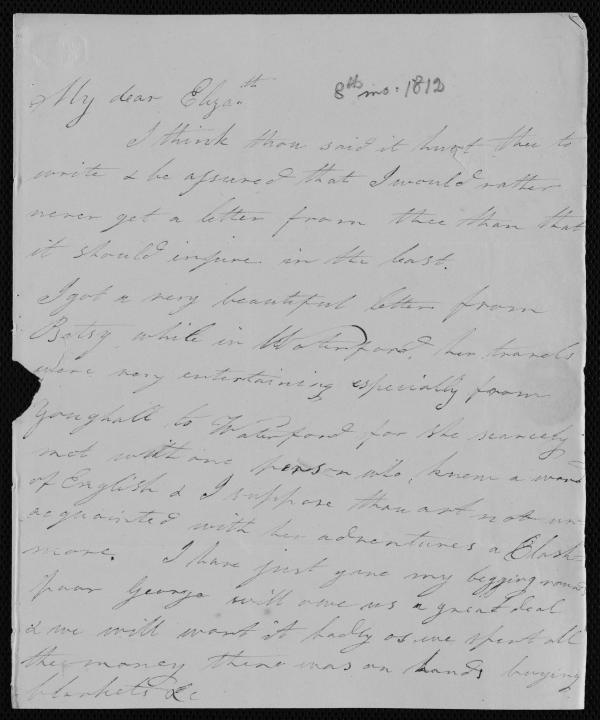 My dear Eliza.th 8th mo: 1812
I think thou said it hurt thee to
write & be assured that I would rather
never get a letter from thee than that
it should injure in the least.
I got a very beautiful letter from
Betsy while in Waterford, her travels
were very entertaining especially from
Youghall to Waterford for she scarcely
met with one person who knew a word
of English & I suppose thou art not un
acquainted with her adventures a Clash
more. I have just gone my begging rounds
poor George will owe us a great deal
& we will want it badly as we spent all
the money there was on hands buying
blankets &c